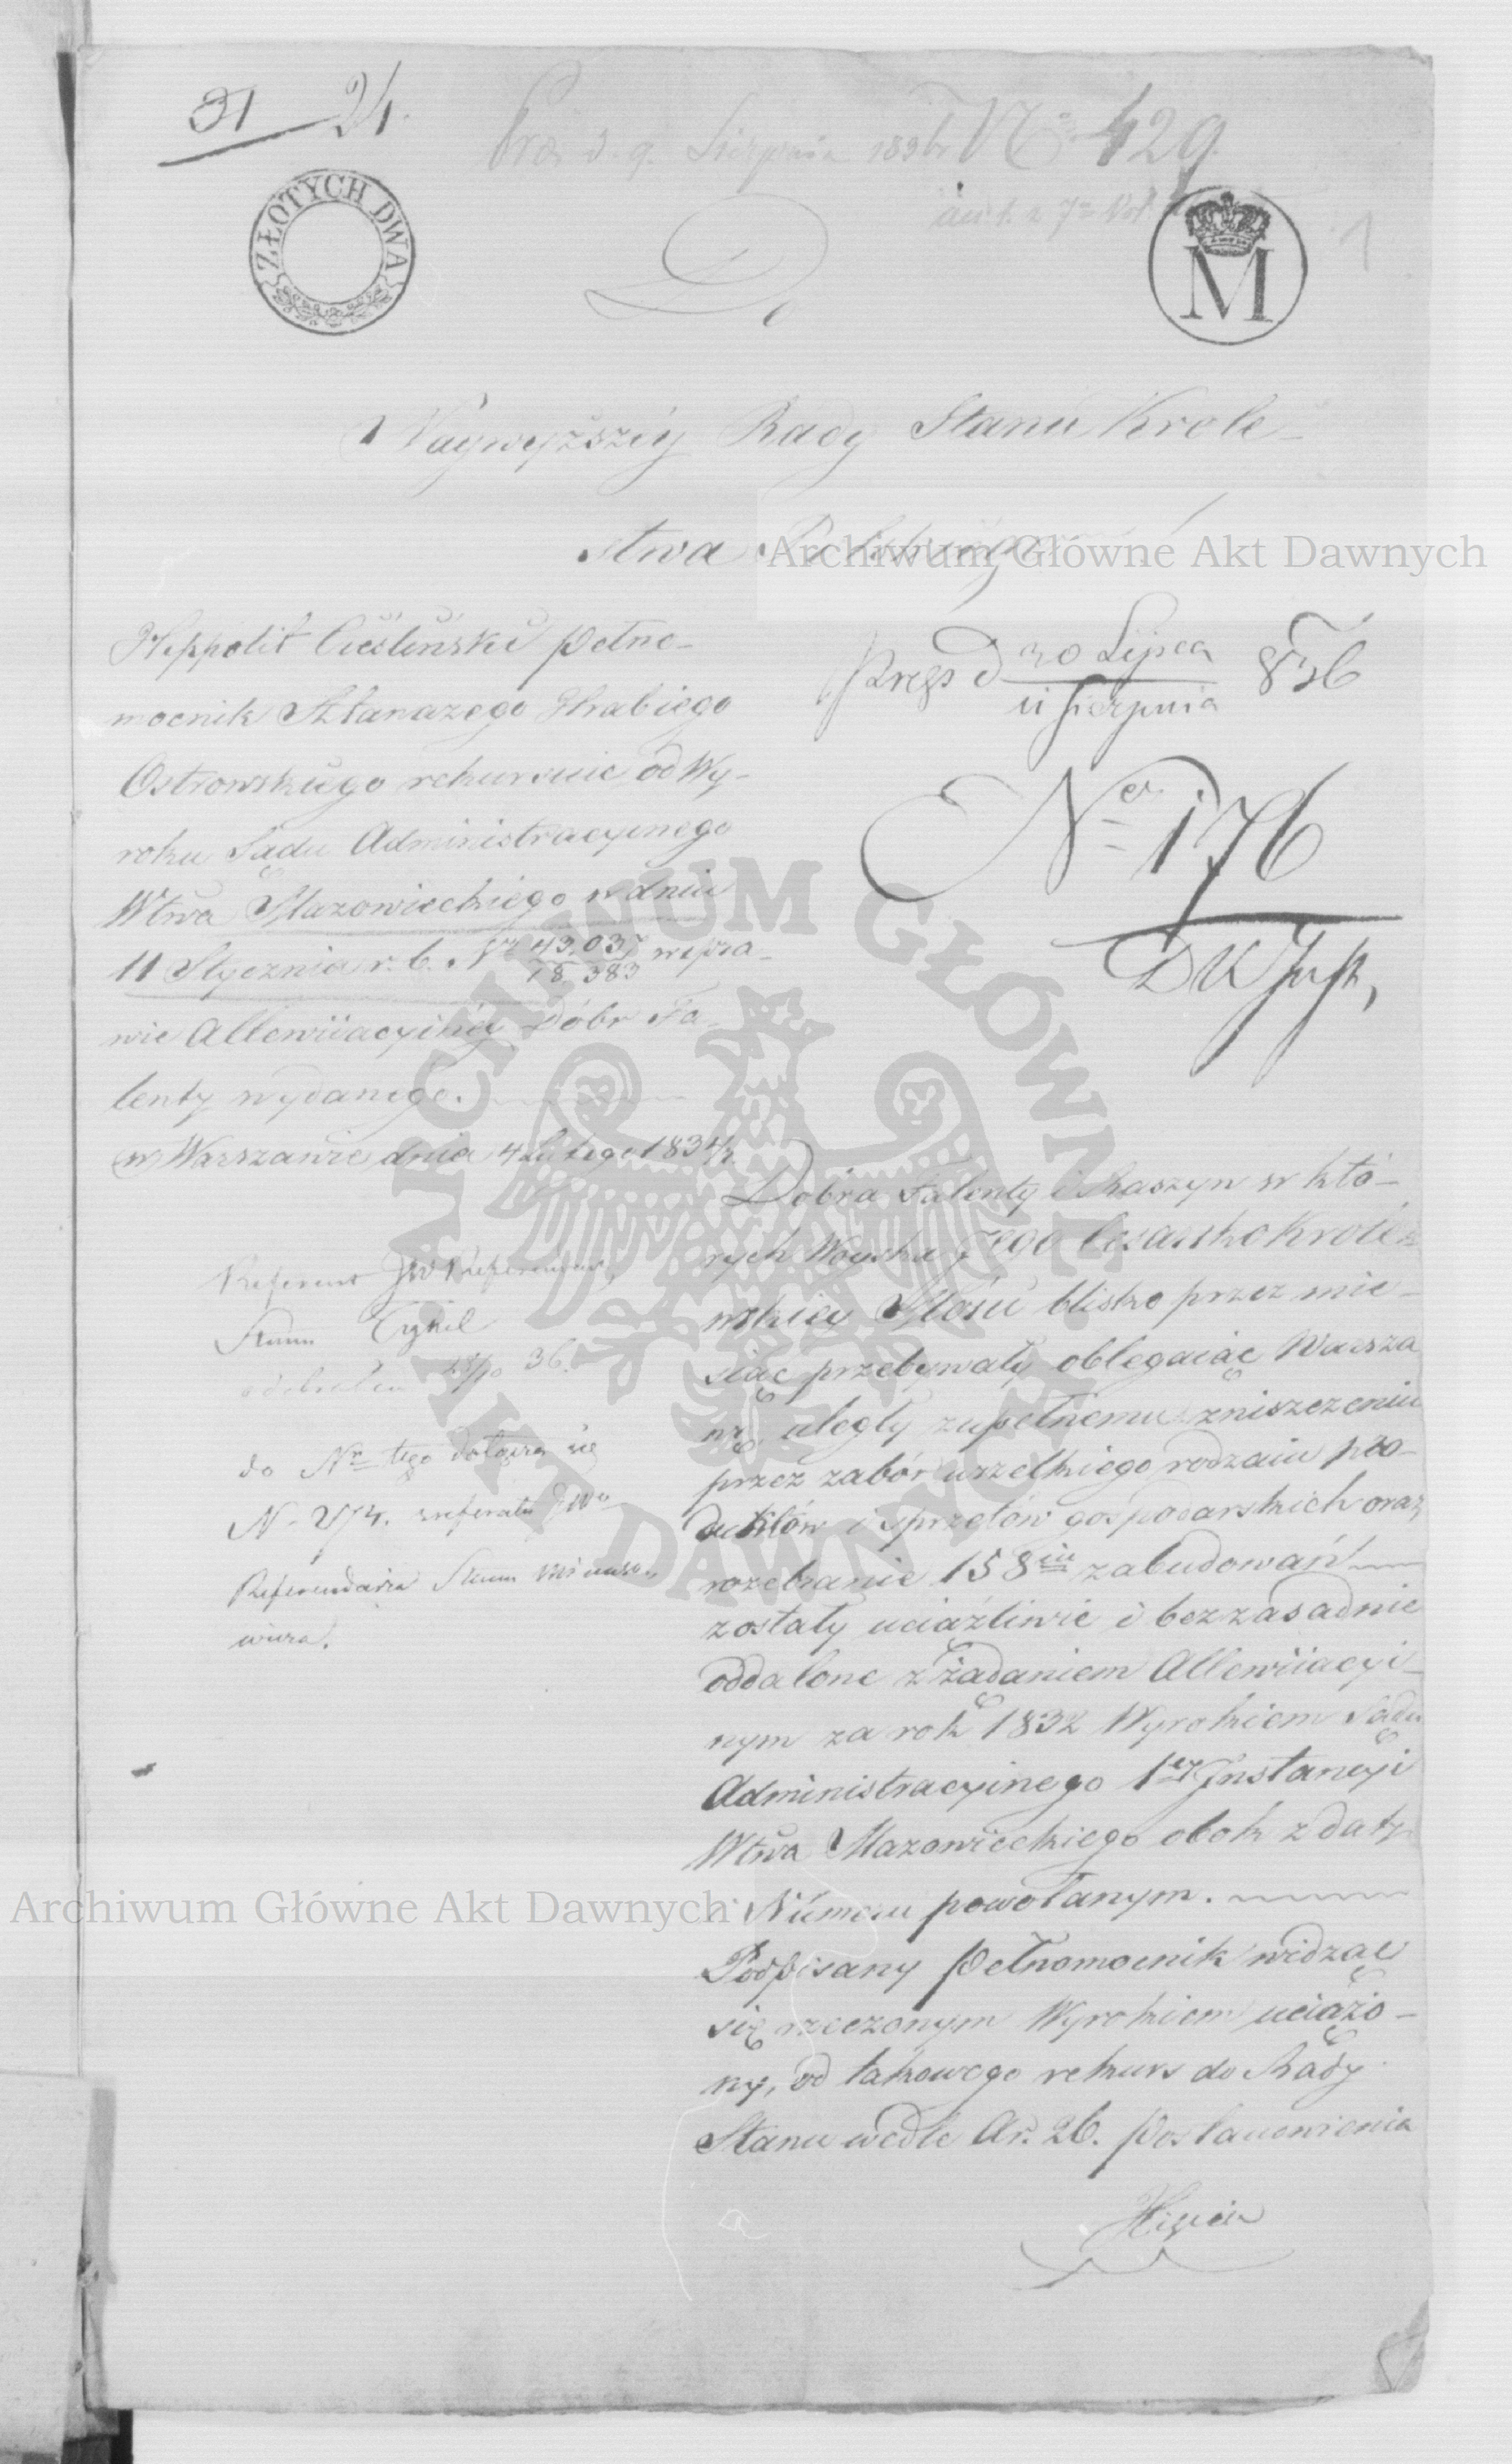 31 24.
Præs d. 9. Sierpnia 1836 r. N° 429
ZŁOTYCH DWA
M
1
Naywyższéy Rady Stanu Krole
stwa Polskiego
Archiwum Główne Akt Dawnych
Hippolit Cieśliński Pełno-
mocnik Hrabiego
Ostrowskiego rekursuie od Wy-
roku Sądu Administracyinego
Wtwa Mazowieckiego w dniu
11 Stycznia r. b. Nr 43,037/18 383 w spra-
wie Allewiiacyinéy Dóbr Fa-
lenty wydanego.
w Warszawie dnia 4 Lutego 1834 r.
Prezs d 30 Lipca / 11 Sierpnia 836
Ner 176
Referent JW Referendarz
Stanu
36.
do Nr tego dołącza się
N. 274. z referatu JWo
Referendarza Stanu
Dobra Falenty i Raszyn w któ-
rych Woyska Jego Cesarsko Krolew
wskiey Mości blisko przez mie-
siąc przebywały oblegaiąc Warsza
wę, uległy zupełnemu zniszczeniu
przez zabór wszelkiego rodzaiu pro-
duktów i sprzętów gospodarskich oraz
rozebranie 158iu zabudowań
zostały uciążliwie i bezzasadnie
oddalone z żądaniem Allewiiacyi-
nym za rok 1832 Wyrokiem Sądu
Administracyinego 1ey Instancyi
Wtwa Mazowieckiego obok z daty
Numeru powołanym.
Archiwum Główne Akt Dawnych
Podpisany Pełnomocnik widząc
się rzeczonym Wyrokiem uciążo-
ny, od takowego rekurs do Rady
Stanu wedle Ar. 26. Postanowienia
ARCHIWUM GŁÓWNE AKT DAWNYCH